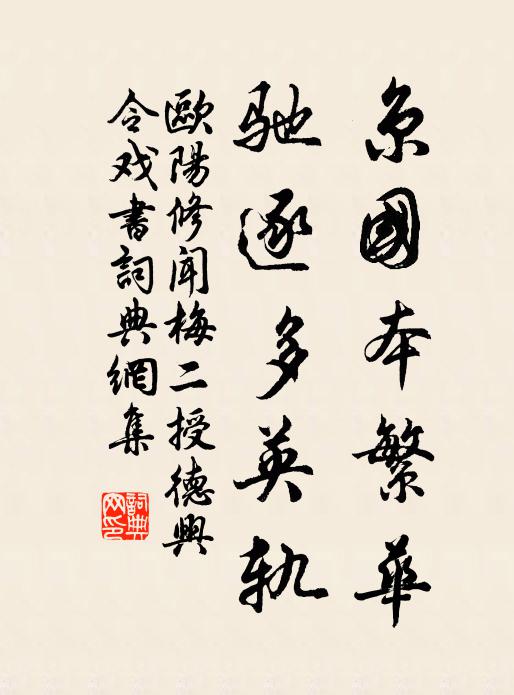 京國本繁華
驰逐多英軌
歐陽修闻梅二授德興
令戏書詞典網集
詞典網印